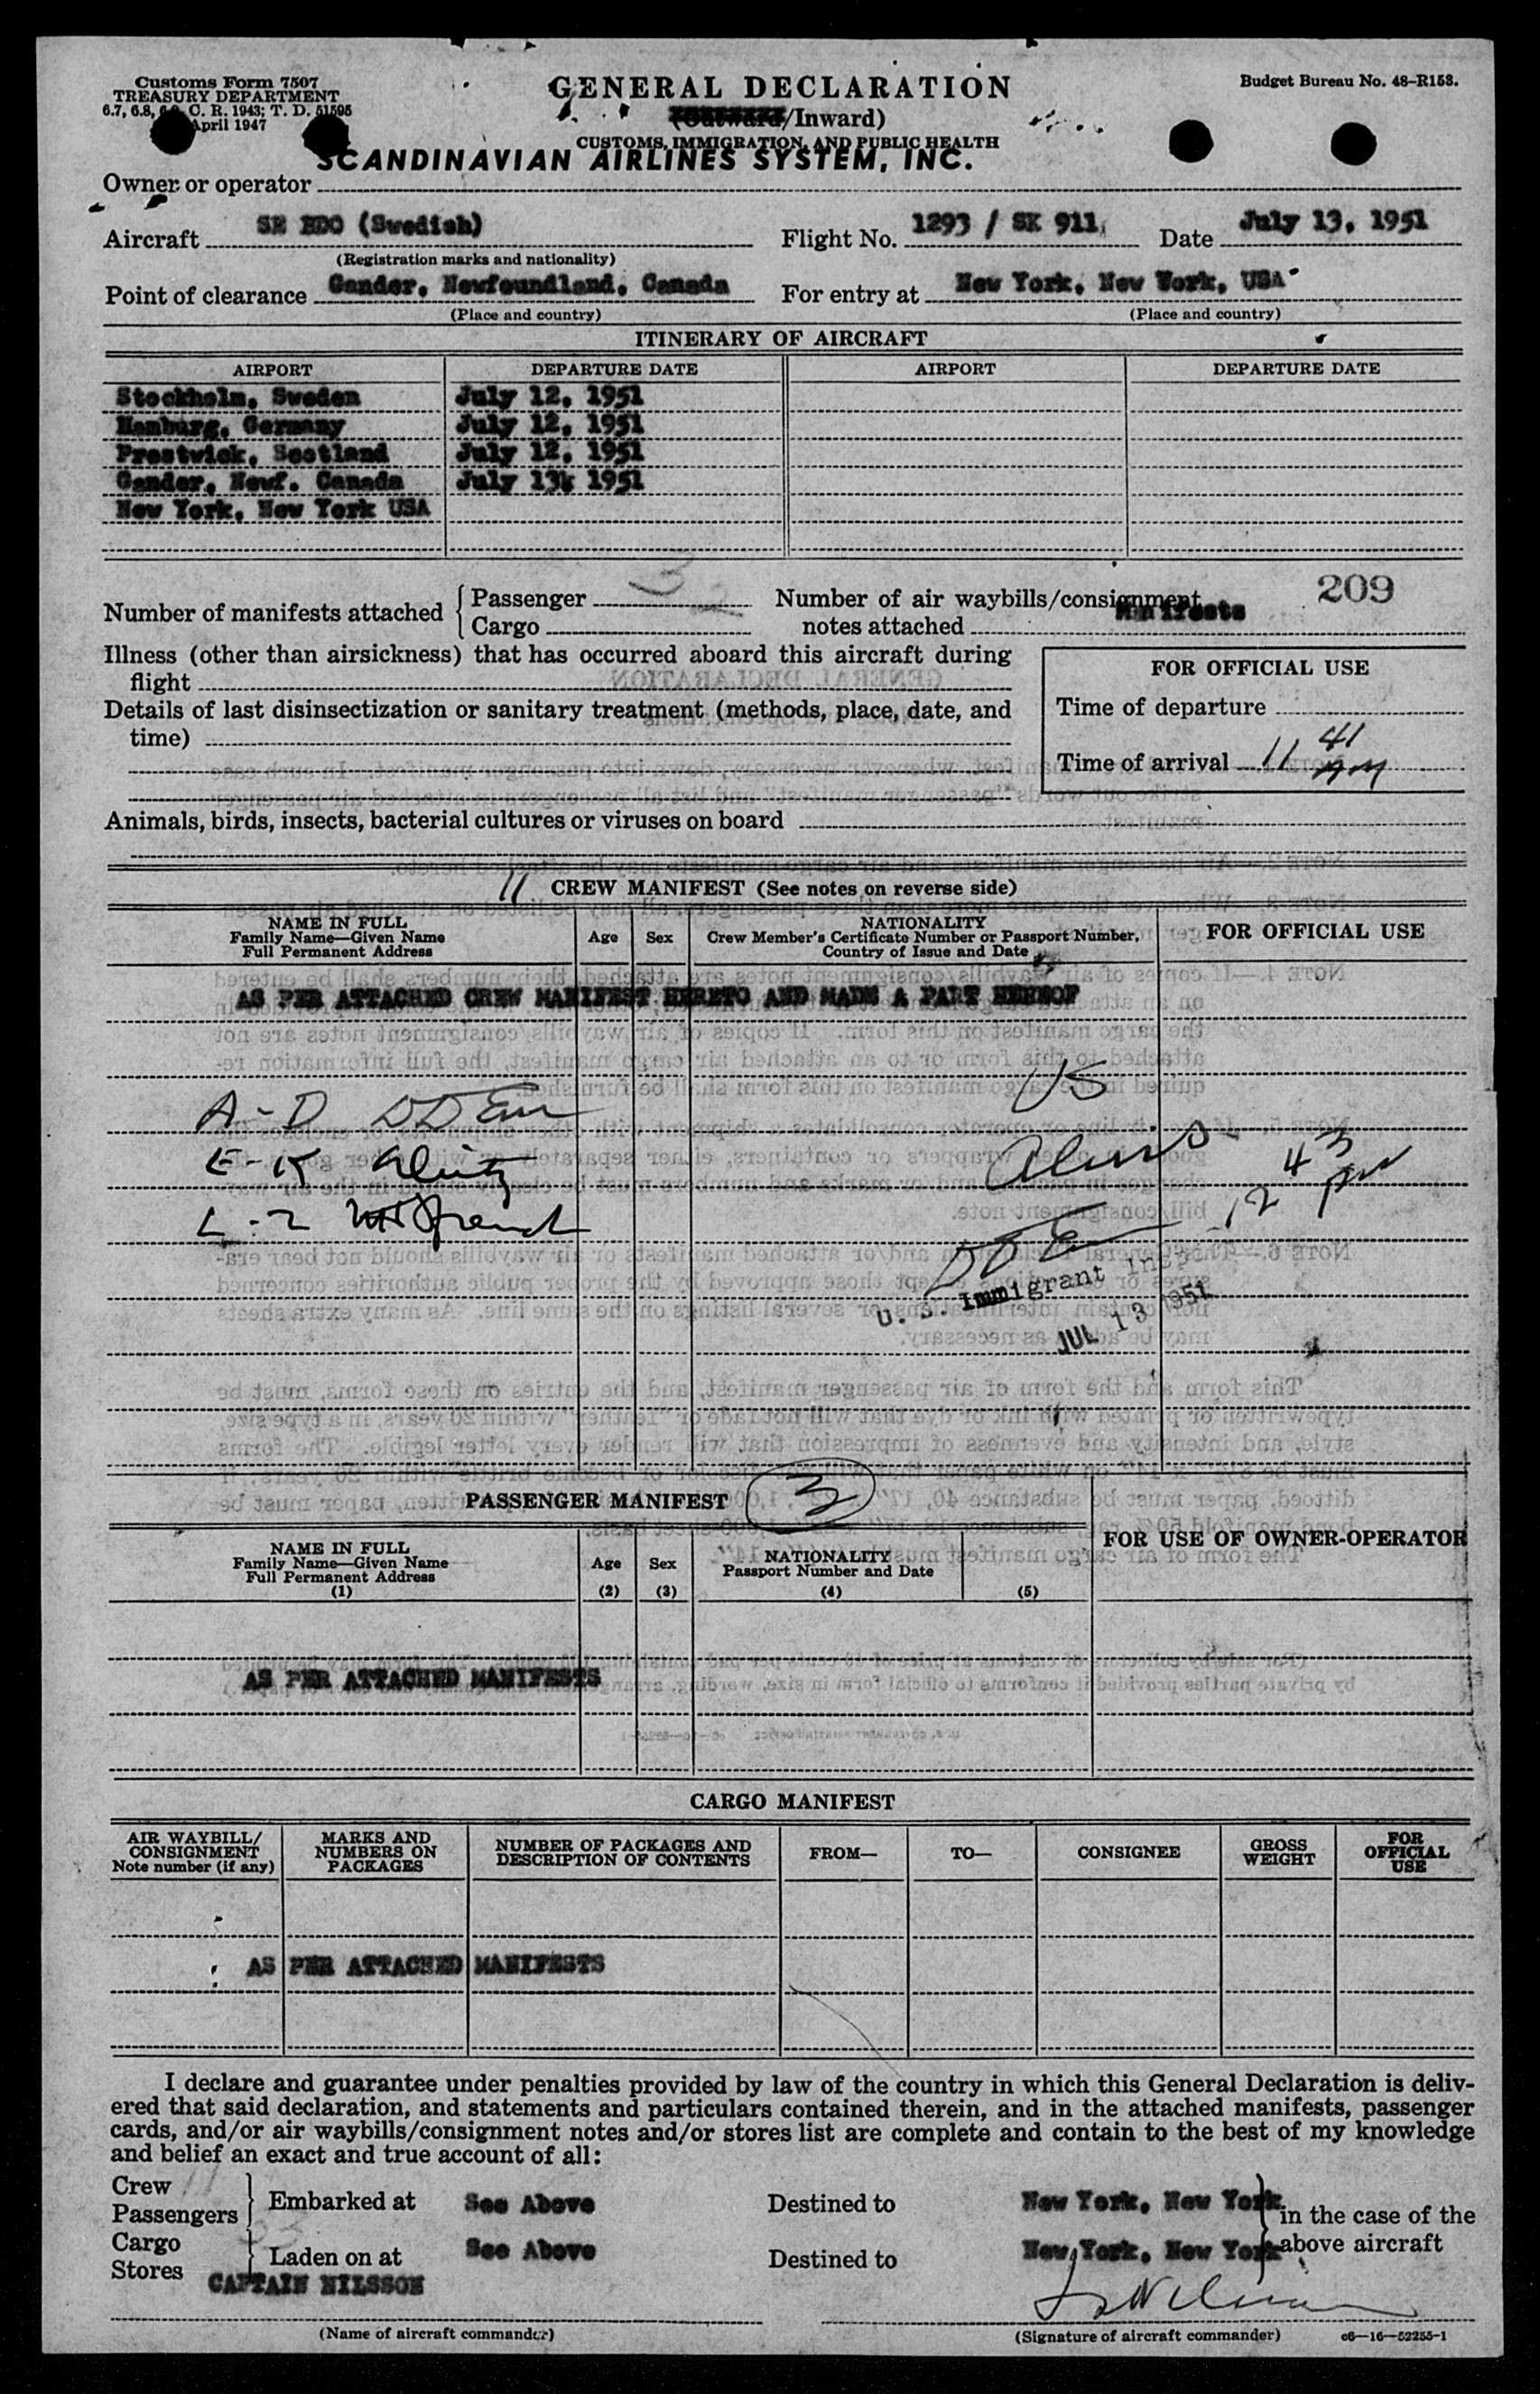 Customs Form 7507
TREASURY DEPARTMENT
6.7, 6.8, C. R. 1943; T. D. 51595
April 1947
GENERAL DECLARATION
(Outward/Inward)
CUSTOMS, IMMIGRATION, AND PUBLIC HEALTH
Budget Bureau No. 48-R153.
SCANDINAVIAN AIRLINES SYSTEM, INC.
Owner or operator
Aircraft SE BDO (Swedish) Flight No. 1293 / SK 911, Date July 13, 1951
(Registration marks and nationality)
Point of clearance Gander, Newfoundland, Canada For entry at New York, New York, USA
(Place and country) (Place and country)
ITINERARY OF AIRCRAFT
AIRPORT DEPARTURE DATE AIRPORT DEPARTURE DATE
Stockholm, Sweden July 12, 1951
Hamburg, Germany July 12, 1951
Prestwick, Scotland July 12, 1951
Gander, Newf. Canada July 13, 1951
New York, New York USA
Number of manifests attached { Passenger 3
Cargo
Number of air waybills/consignment
notes attached Manifests
209
Illness (other than airsickness) that has occurred aboard this aircraft during
flight
Details of last disinsectization or sanitary treatment (methods, place, date, and
time)
FOR OFFICIAL USE
Time of departure
Time of arrival 11 41 AM
Animals, birds, insects, bacterial cultures or viruses on board
11 CREW MANIFEST (See notes on reverse side)
NAME IN FULL
Family Name—Given Name
Full Permanent Address
Age
Sex
NATIONALITY
Crew Member's Certificate Number or Passport Number,
Country of Issue and Date
FOR OFFICIAL USE
AS PER ATTACHED CREW MANIFEST HERETO AND MADE A PART HEREOF
US
A-D
E-K
L-Z
Aliens
12 43 PM
U. S. Immigrant Inspector
JUL 13 1951
PASSENGER MANIFEST 3
NAME IN FULL
Family Name—Given Name
Full Permanent Address
(1)
Age
(2)
Sex
(3)
NATIONALITY
Passport Number and Date
(4)
(5)
FOR USE OF OWNER-OPERATOR
AS PER ATTACHED MANIFESTS
CARGO MANIFEST
AIR WAYBILL/
CONSIGNMENT
Note number (if any)
MARKS AND
NUMBERS ON
PACKAGES
NUMBER OF PACKAGES AND
DESCRIPTION OF CONTENTS
FROM—
TO—
CONSIGNEE
GROSS
WEIGHT
FOR
OFFICIAL
USE
AS PER ATTACHED MANIFESTS
I declare and guarantee under penalties provided by law of the country in which this General Declaration is deliv-
ered that said declaration, and statements and particulars contained therein, and in the attached manifests, passenger
cards, and/or air waybills/consignment notes and/or stores list are complete and contain to the best of my knowledge
and belief an exact and true account of all:
Crew 11
Passengers } Embarked at See Above Destined to New York, New York
Cargo
Stores } Laden on at See Above Destined to New York, New York
in the case of the
above aircraft
CAPTAIN NILSSON
(Name of aircraft commander)
(Signature of aircraft commander)
c6—16—52255-1